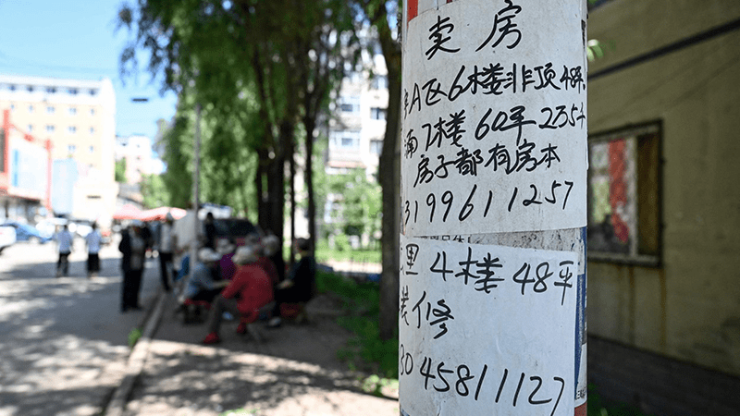 卖房
A区6楼非顶48平
湳7楼60平2.5万
房子都有房本
3199611257
里4楼48平
装修
3045811127